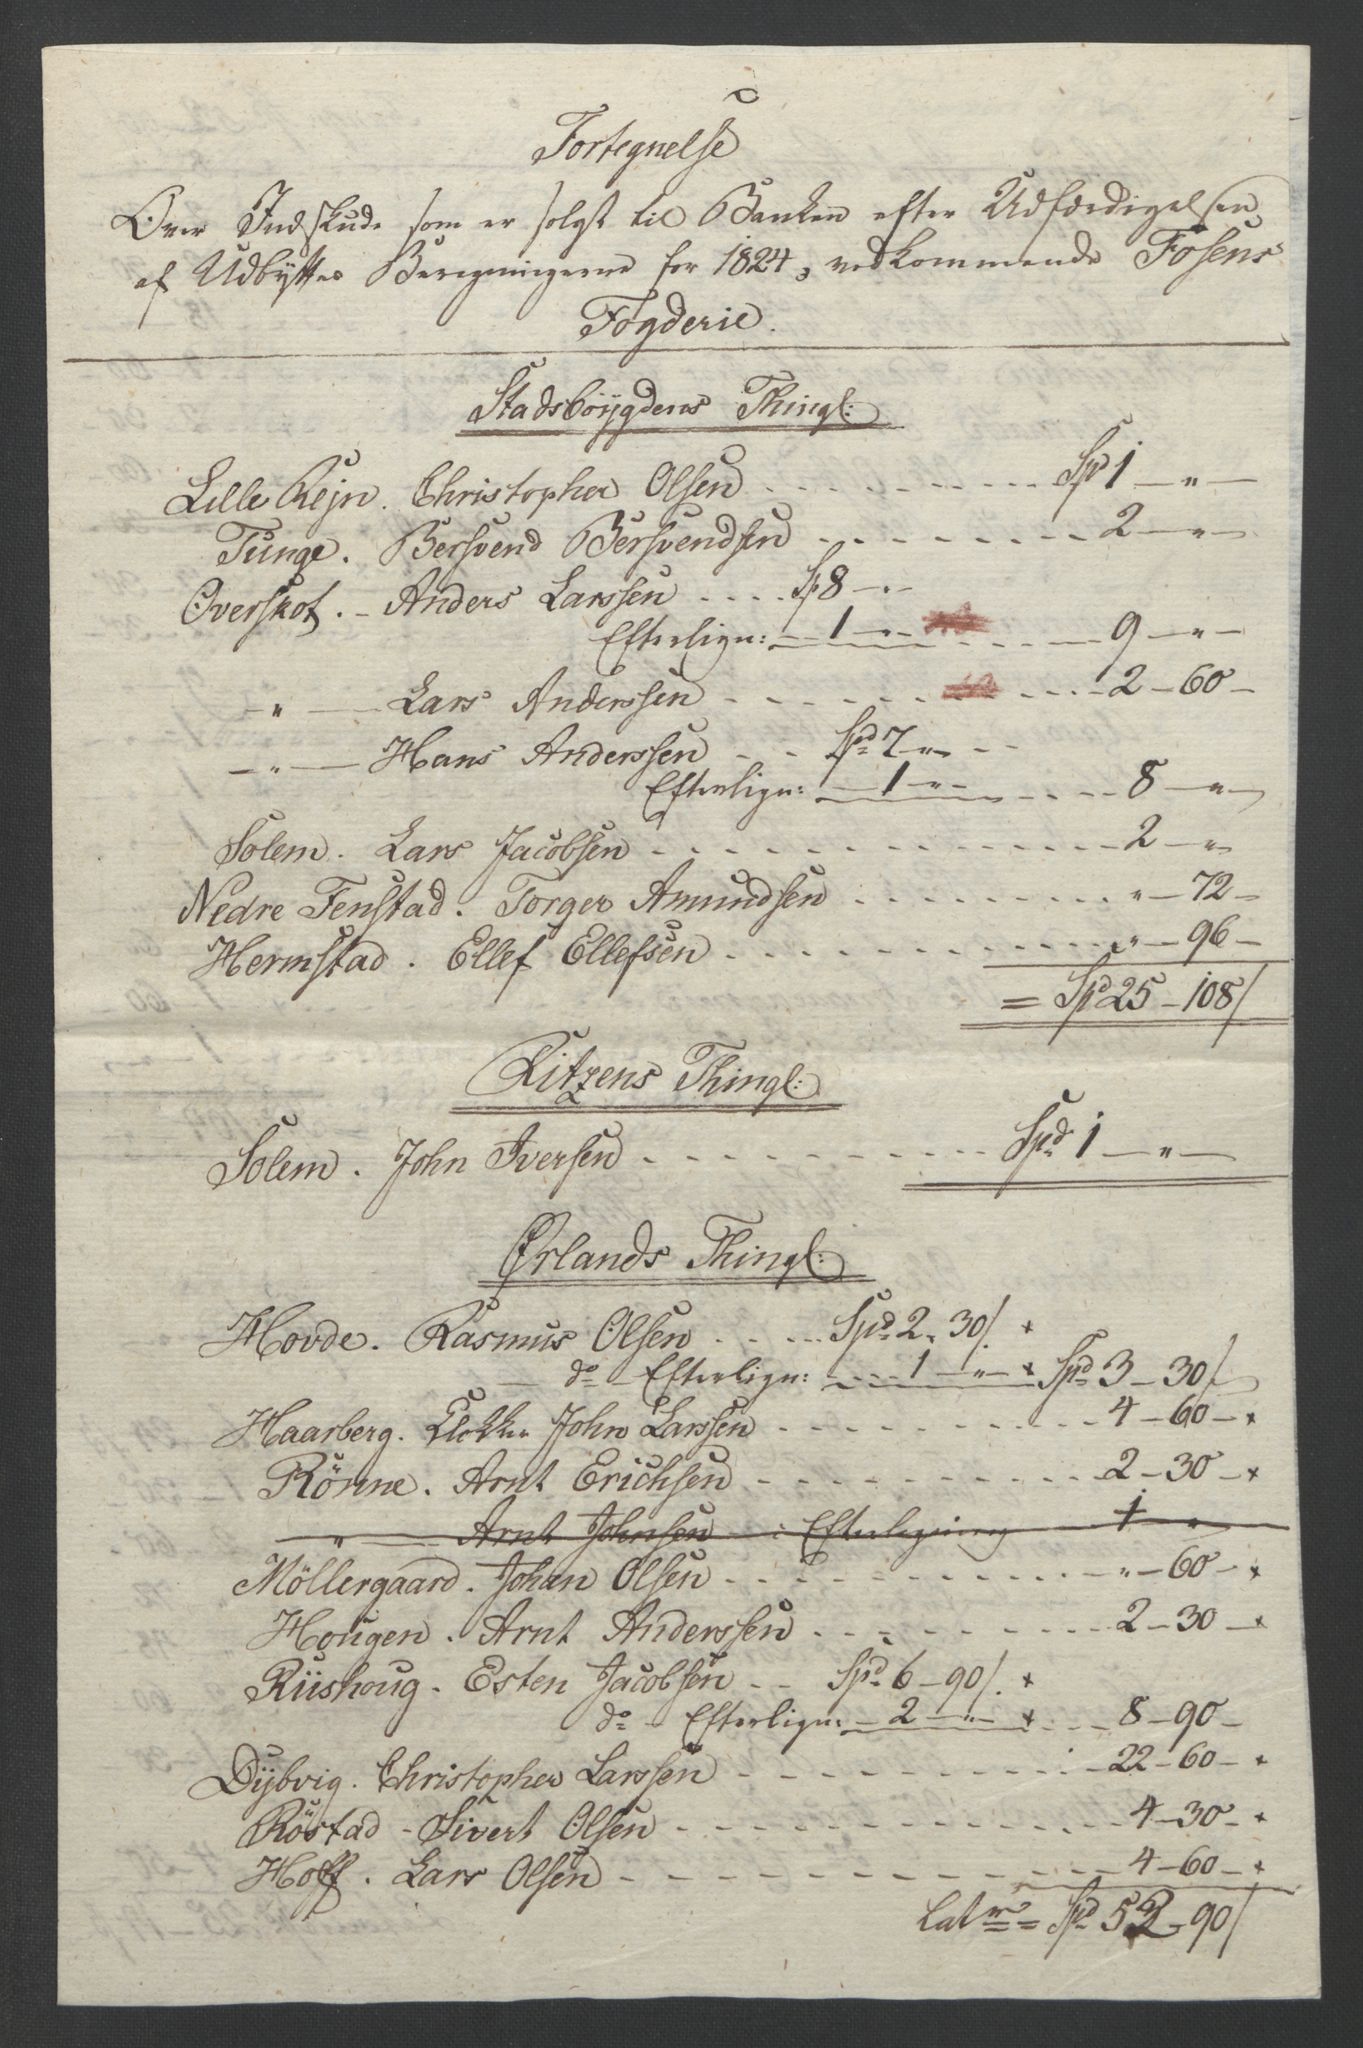 Fortegnelse
Over Indskude som er solgt til Banken efter Udfærdigelsen
af Udbyttes Beregningerne for 1824, vedkommende Fosens
Fogderie.
Stadsböÿgdens Thingl:
Lille Rejn. Christopher Olsen Spd 1 - " -
Tunge. Bersvend Bersvendsen 2 - " -
Overskot. - Anders Larssen Sp 8 - " -
Efterlign: 1 - " - 9 - " -
" Lars Anderssen 2 - 60 -
" Hans Anderssen Spd 7 - " -
Efterlign: 1 - " - 8 - " -
Solem. Lars Jacobsen 2 - "
Nedre Fenstad. Torger Amundsen " - 72 -
Hermstad. Ellef Ellefsen " - 96 -
= Spd 25 - 108/
Ritzens Thingl:
Solem. John Iversen Spd 1 - " -
Ørlands Thingl:
Hovde. Rasmus Olsen Spd 2 - 30/. x
do - Efterlign: 1 - " - x Spd 3 - 30/
Haarberg. Klokker John Larssen 4 - 60 - x
Rönne. Arnt Erichsen 2 - 30 - x
" Arnt Johnsen Efterligning 1 "
Möllergaard. Johan Olsen " - 60 - x
Hougen. Arnt Anderssen 2 - 30 - x
Riishoug - Esten Jacobsen Spd 6 - 90/. x
do - Efterlign: 2 - " - x 8 - 90 -
Dÿbvig. Christopher Larssen 22 - 60 - x
Röstad - Sivert Olsen 4 - 30 - x
Hoff. Lars Olsen 4 - 60 - x
Latr = Spd 53 - 90/